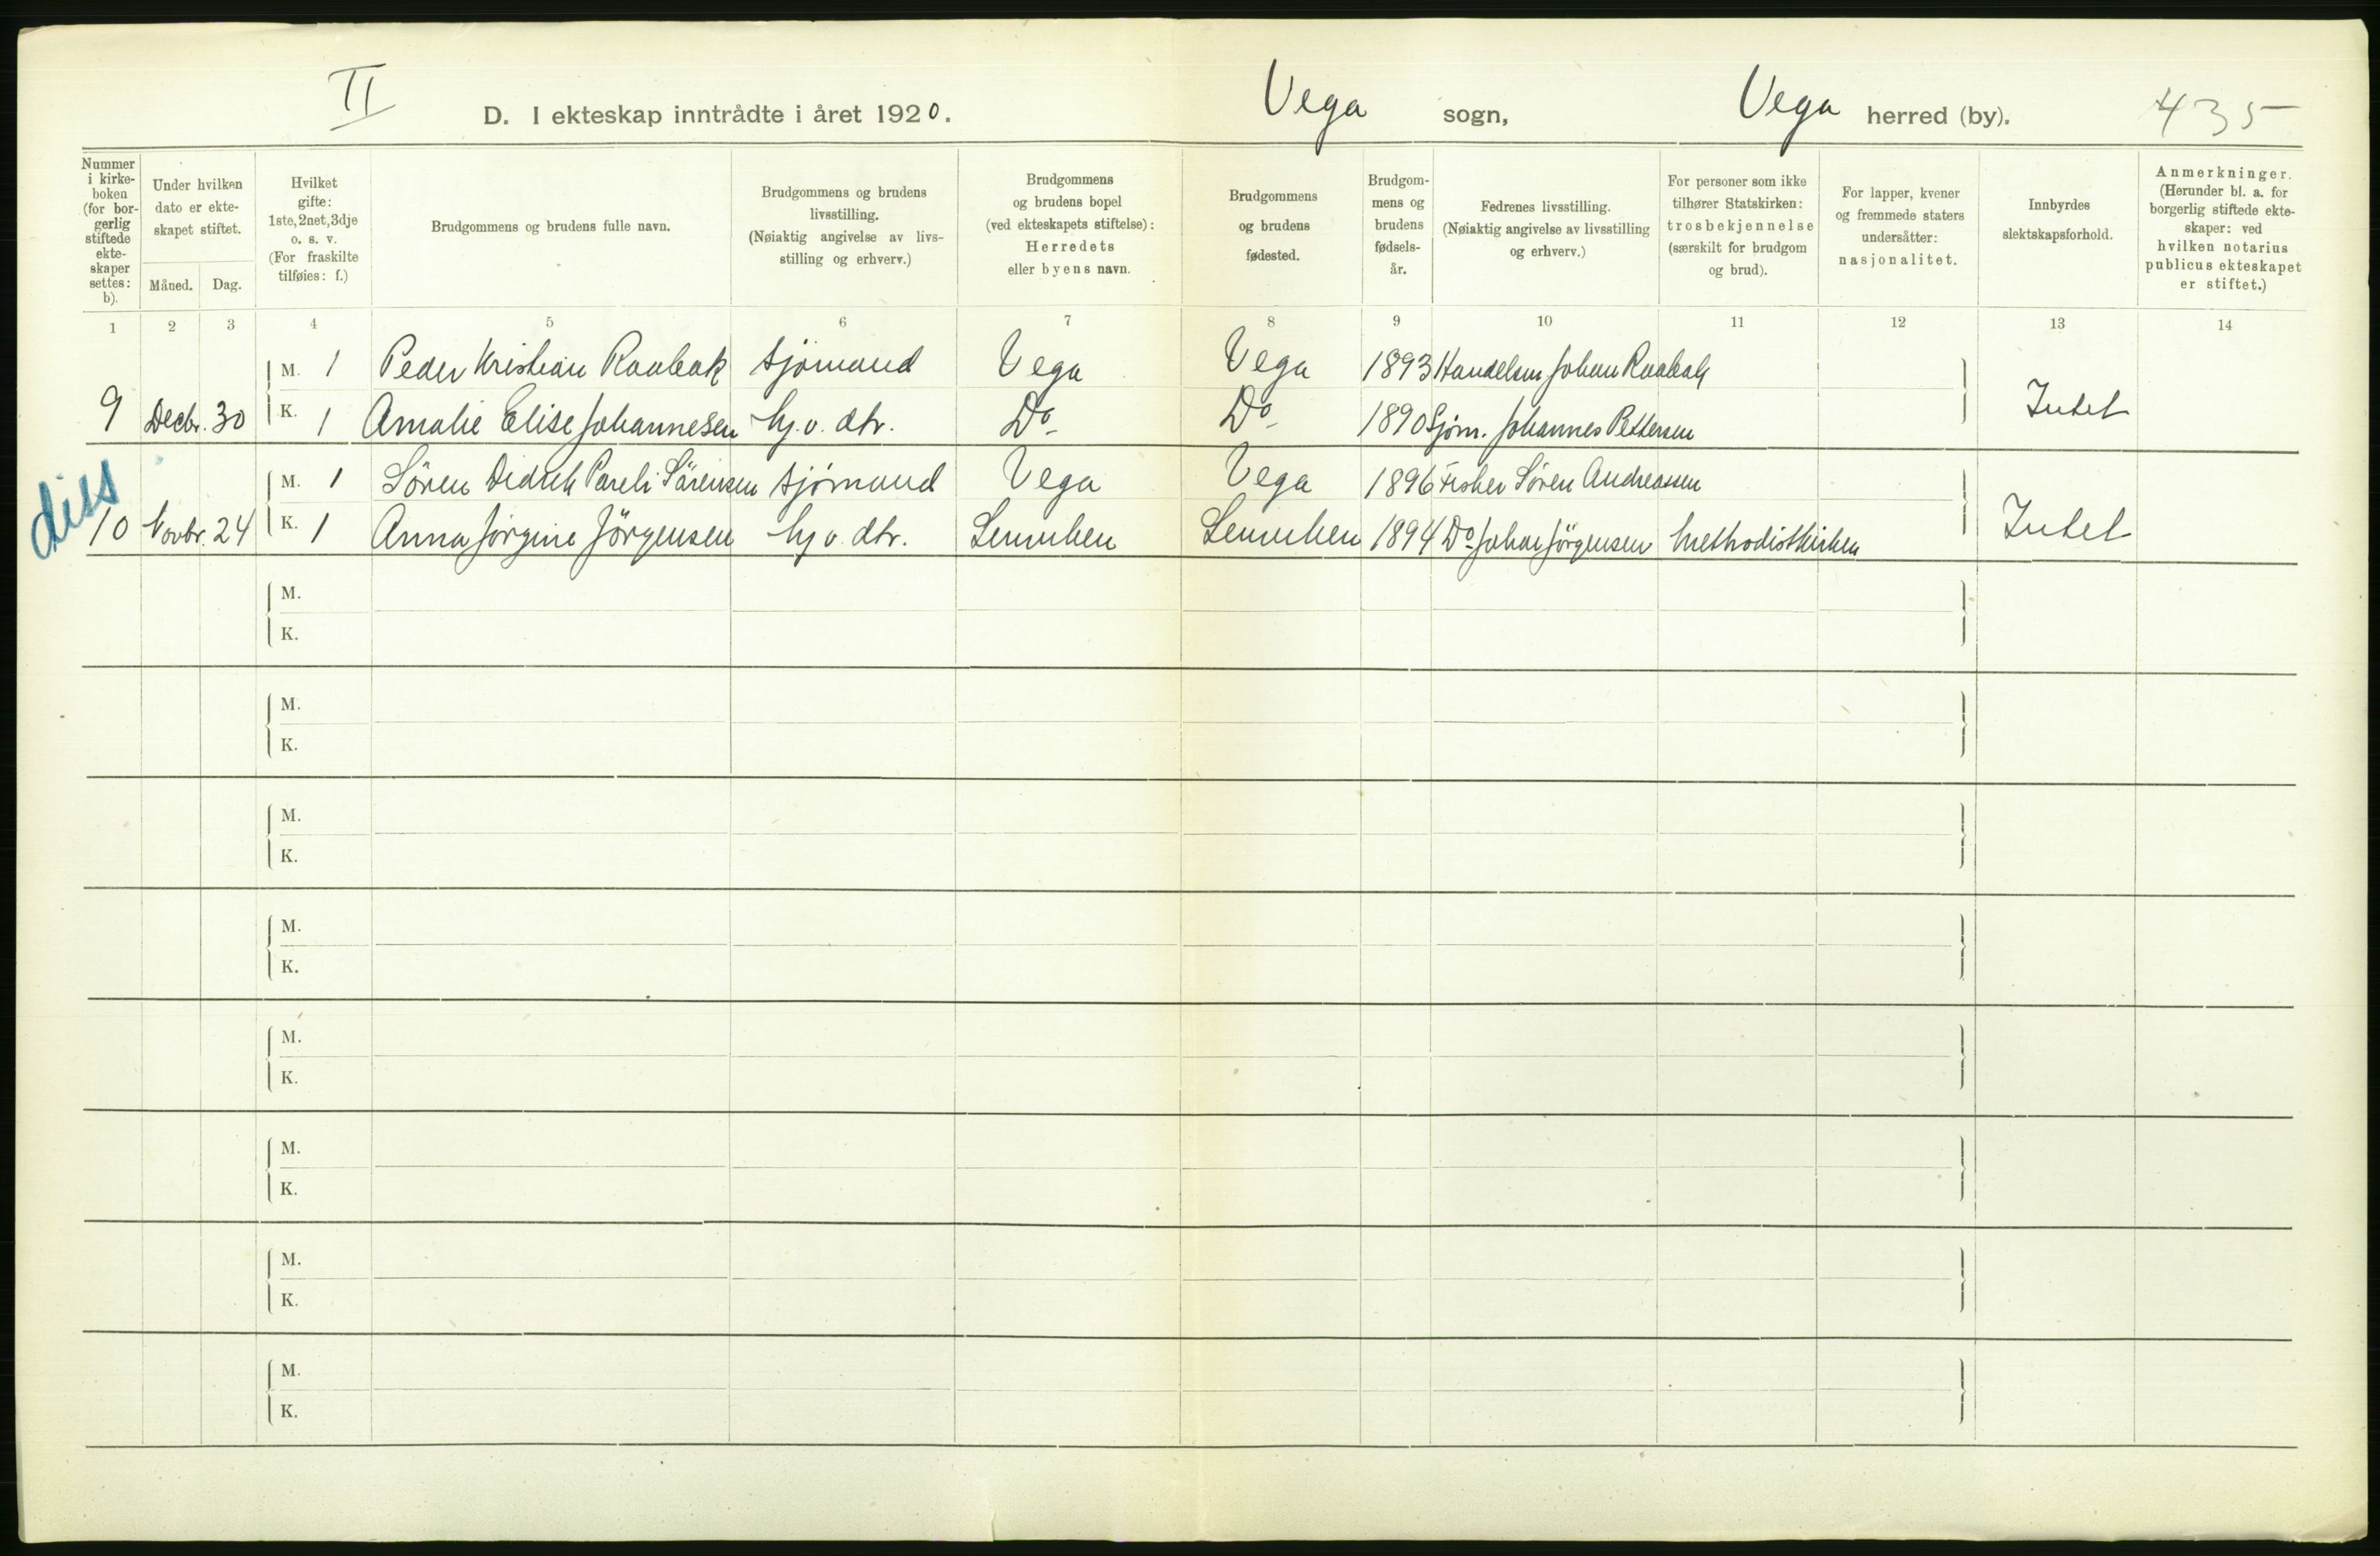 II
D. I ekteskap inntrådte i året 1920.
Vega sogn,
Vega herred (by).
435
Nummer i kirkeboken (for borgerlig stiftede ekteskaper settes: b).
Under hvilken dato er ekteskapet stiftet.
Måned. Dag.
Hvilket gifte: 1ste, 2net, 3dje o. s. v. (For fraskilte tilføies: f.)
Brudgommens og brudens fulle navn.
Brudgommens og brudens livsstilling. (Nøiaktig angivelse av livsstilling og erhverv.)
Brudgommens og brudens bopel (ved ekteskapets stiftelse): Herredets eller byens navn.
Brudgommens og brudens fødested.
Brudgommens og brudens fødselsår.
Fedrenes livsstilling. (Nøiaktig angivelse av livsstilling og erhverv.)
For personer som ikke tilhører Statskirken: trosbekjennelse (særskilt for brudgom og brud).
For lapper, kvener og fremmede staters undersåtter: nasjonalitet.
Innbyrdes slektskapsforhold.
Anmerkninger. (Herunder bl. a. for borgerlig stiftede ekteskaper: ved hvilken notarius publicus ekteskapet er stiftet.)
1 2 3 4 5 6 7 8 9 10 11 12 13 14
M. 1 Peder Kristian Raabak sjömand Vega Vega 1893 Handelsm Johan Raabak
9 Decbr. 30 K. 1 Amalie Elise Johannesen hj. v. dtr. Do Do 1890 Sjöm. Johannes Pettersen Intet
diss
M. 1 Sören Didrik Pareli Sörensen sjömand Vega Vega 1896 Fisker Sören Andreassen
10 Novbr. 24 K. 1 Anna Jörgine Jörgensen hj v. dtr. 1894 Do Johan Jörgensen Methodistkirken Intet
M.
K.
M.
K.
M.
K.
M.
K.
M.
K.
M.
K.
M.
K.
M.
K.